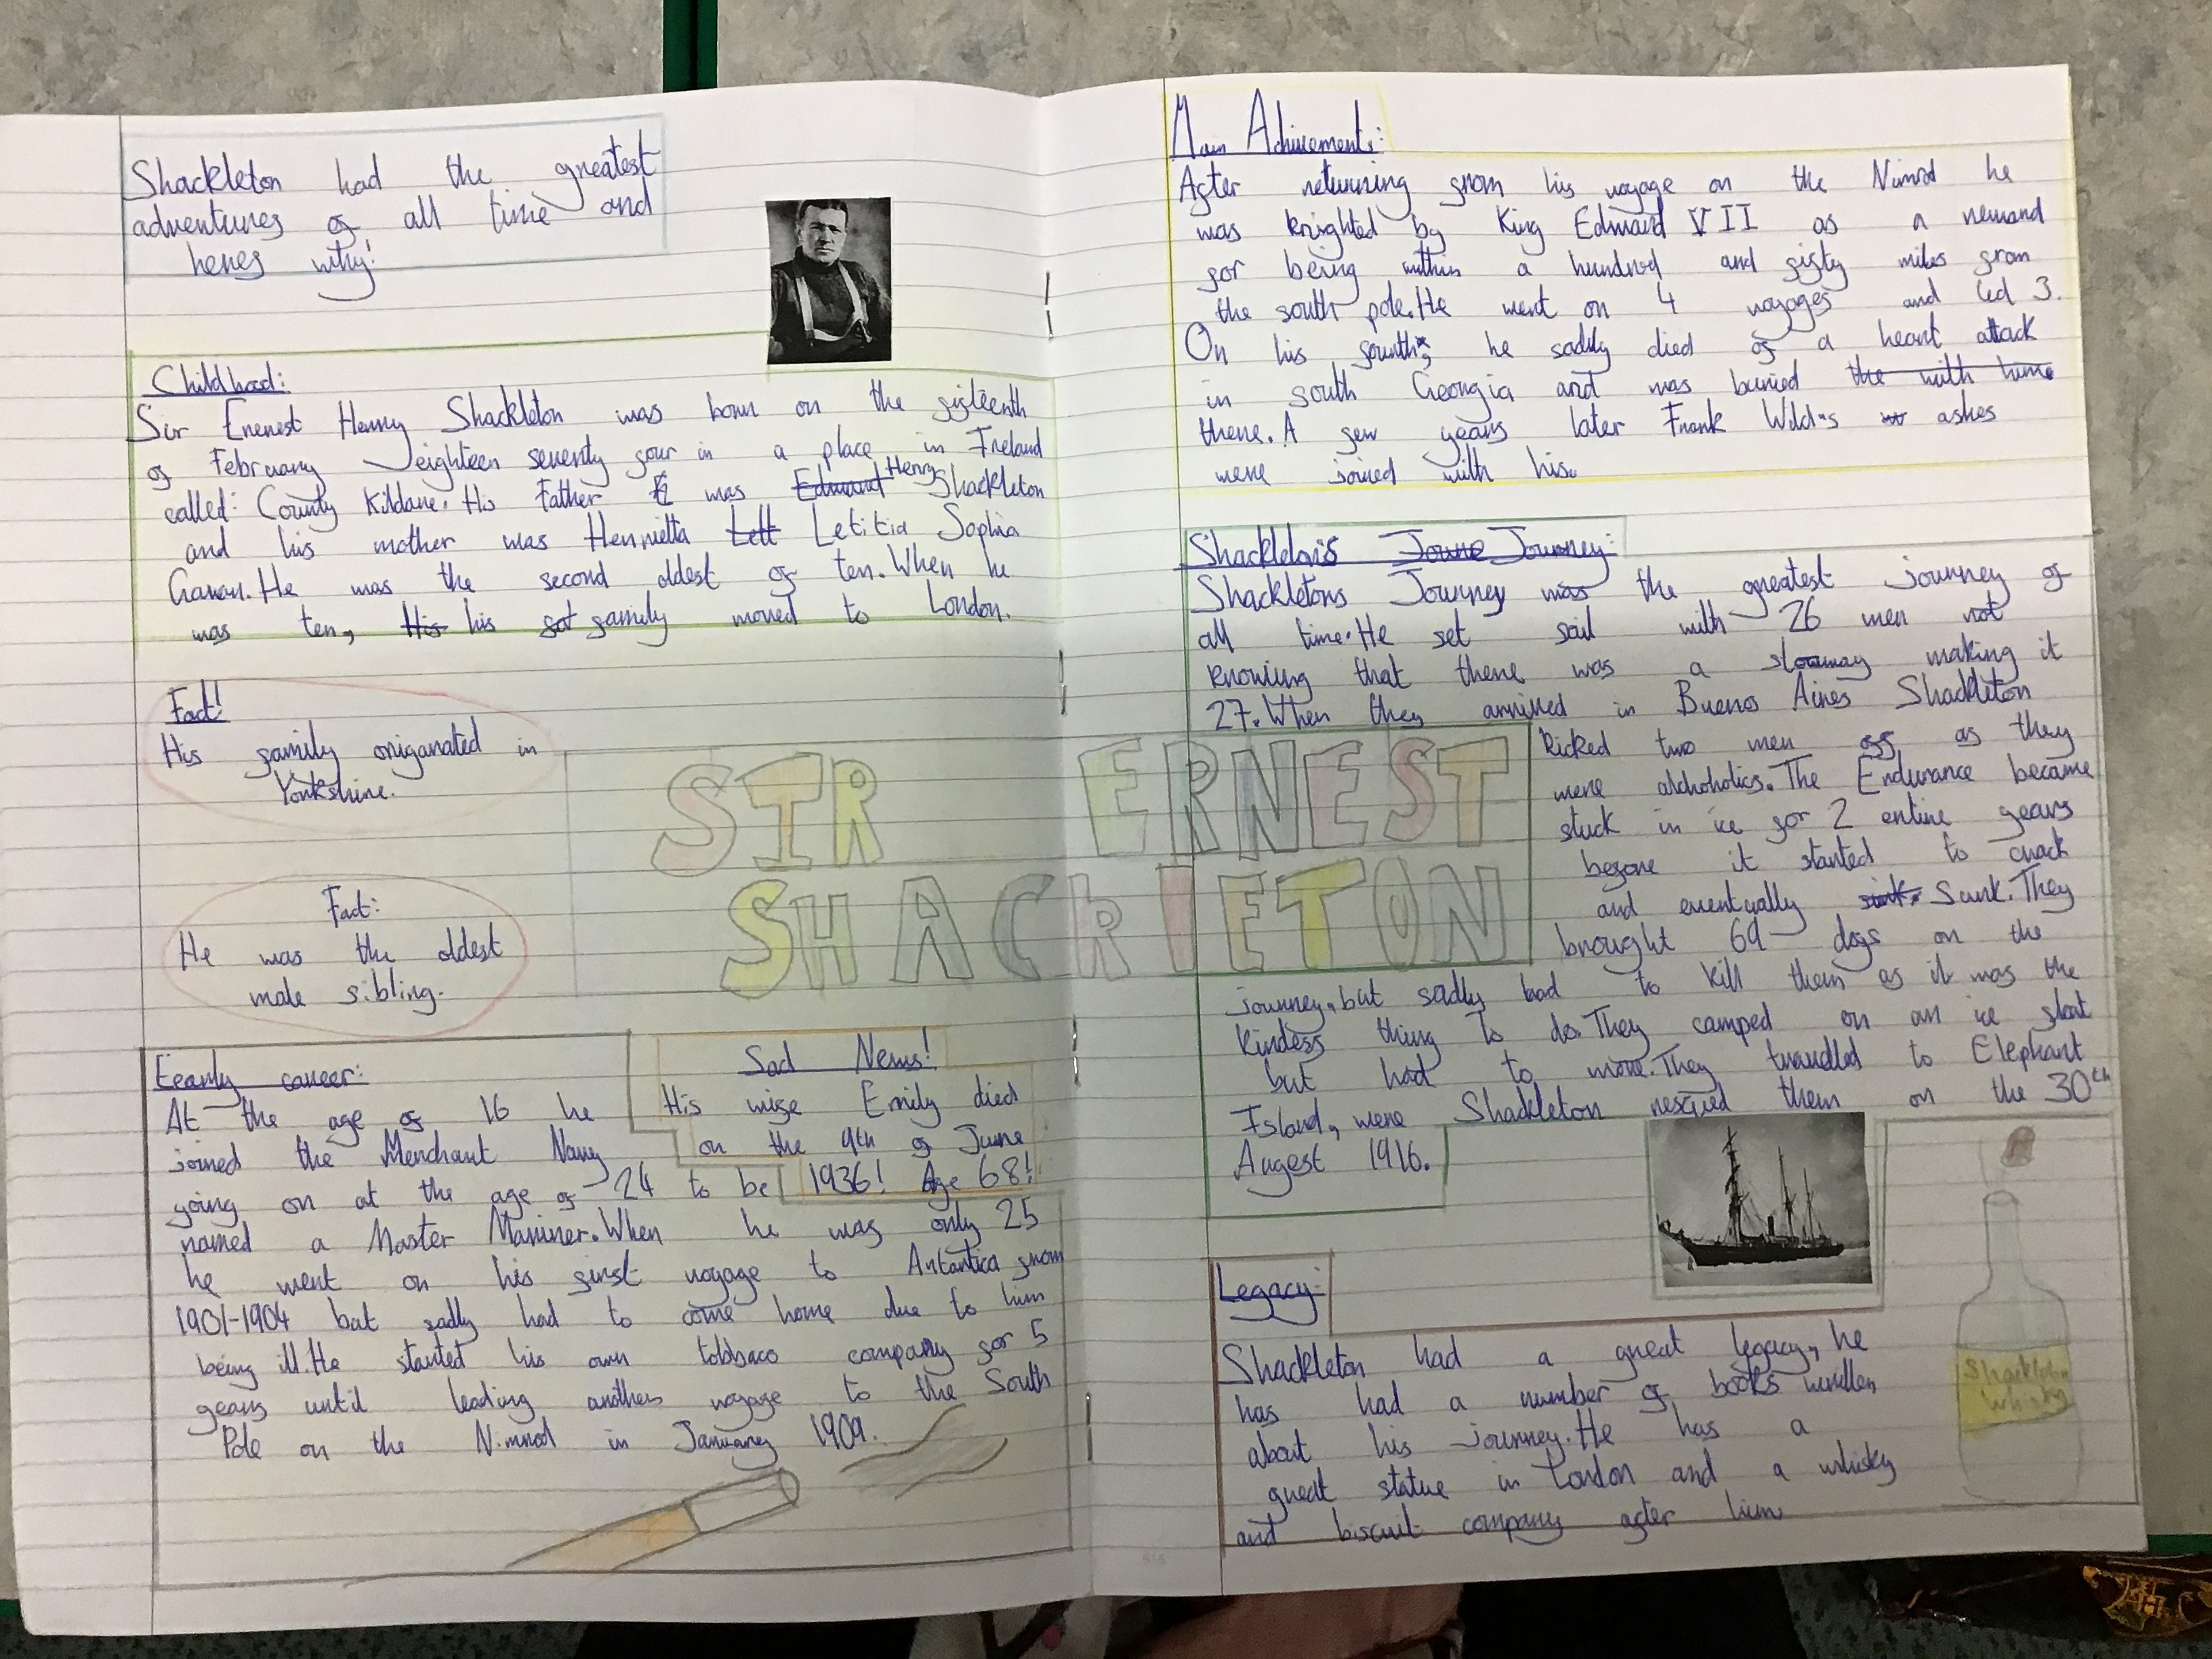 Shackleton had the greatest
adventures of all time and
heres why!
Childhood:
Sir Erenest Henry Shackleton was born on the sixteenth
of February eighteen seventy four in a place in Ireland
called: County Kildare. His Father was Edmund Henry Shackleton
and his mother was Henrietta Lett Letitia Sophia
Gavan. He was the second oldest of ten. When he
was ten, His his family moved to London.
Fact!
His family origanated in
Yorkshire.
Fact:
He was the oldest
male sibling.
SIR ERNEST
SHACKlETON
Eearly career:
At the age of 16 he
joined the Merchant Navy
going on at the age of 24 to be
named a Master Mariner. When he was only 25
he went on his first voyage to Antartica from
1901-1904 but sadly had to come home due to him
being ill. He started his own tobbaco company for 5
years until leading another voyage to the South
Pole on the Nimrod in January 1909.
Sad News!
His wife Emily died
on the 9th of June
1936! Age 68!
Main Achivements:
After returning from his voyage on the Nimrod he
was knighted by King Edward VII as a reward
for being within a hundred and sixty miles from
the south pole. He went on 4 voyages and led 3.
On his fourth, he sadily died of a heart attack
in south Georgia and was buried the with hime
there. A few years later Frank Wild's ashes
were joined with his.
Shackleton's Joune Journey:
Shackletons Journey was the greatest journey of
all time. He set sail with 26 men not
knowing that there was a stowaway making it
27. When they arrived in Buenos Aires Shackleton
kicked two men off as they
were alchoholics. The Endurance became
stuck in ice for 2 entire years
before it started to crack
and eventually sink. Sunk. They
brought 69 dogs on the
journey, but sadly had to kill them as it was the
kindess thing to do. They camped on an ice float
but had to move. They travelled to Elephant
Island, were Shackleton rescued them on the 30th
Augest 1916.
Legacy:
Shackleton had a great legacy, he
has had a number of books written
about his journey. He has a
great statue in London and a whisky
and biscuit company after him
Shackleton
Whisky